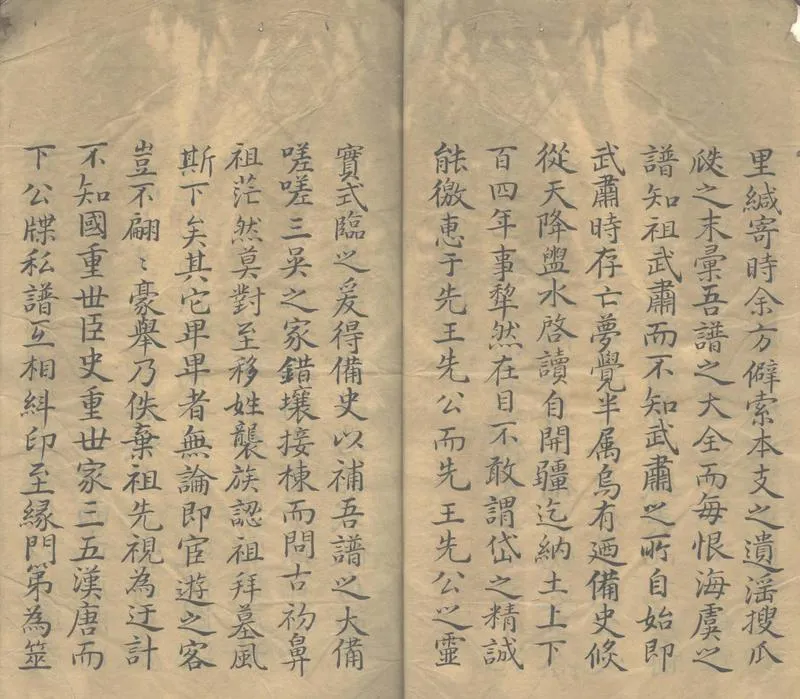 里緘寄時余方僻索本支之遺滛搜瓜
瓞之末彙吾譜之大全而每恨海虞之
譜知祖武肅而不知武肅之所自始即
武肅時存亡夢覺半属烏有廼備史倐
從天降盥水啓讀自開疆迄納土上下
百四年事犂然在目不敢謂岱之精誠
能徼恵于先王先公而先王先公之靈
寳式臨之爰得備史以補吾譜之大備
嗟嗟三吳之家錯壤接棟而問古礽鼻
祖茫然莫對至移姓襲族認祖拜墓風
斯下矣其它卑卑者無論即宦遊之客
豈不翩〻豪舉乃佚棄祖先視為迂計
不知國重世臣史重世家三五漢唐而
下公牒私譜互相紏印至縁門第為筮